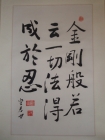 金剛般若
云一切法得
成於忍